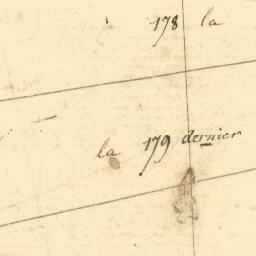 178 la
la 179 dernier